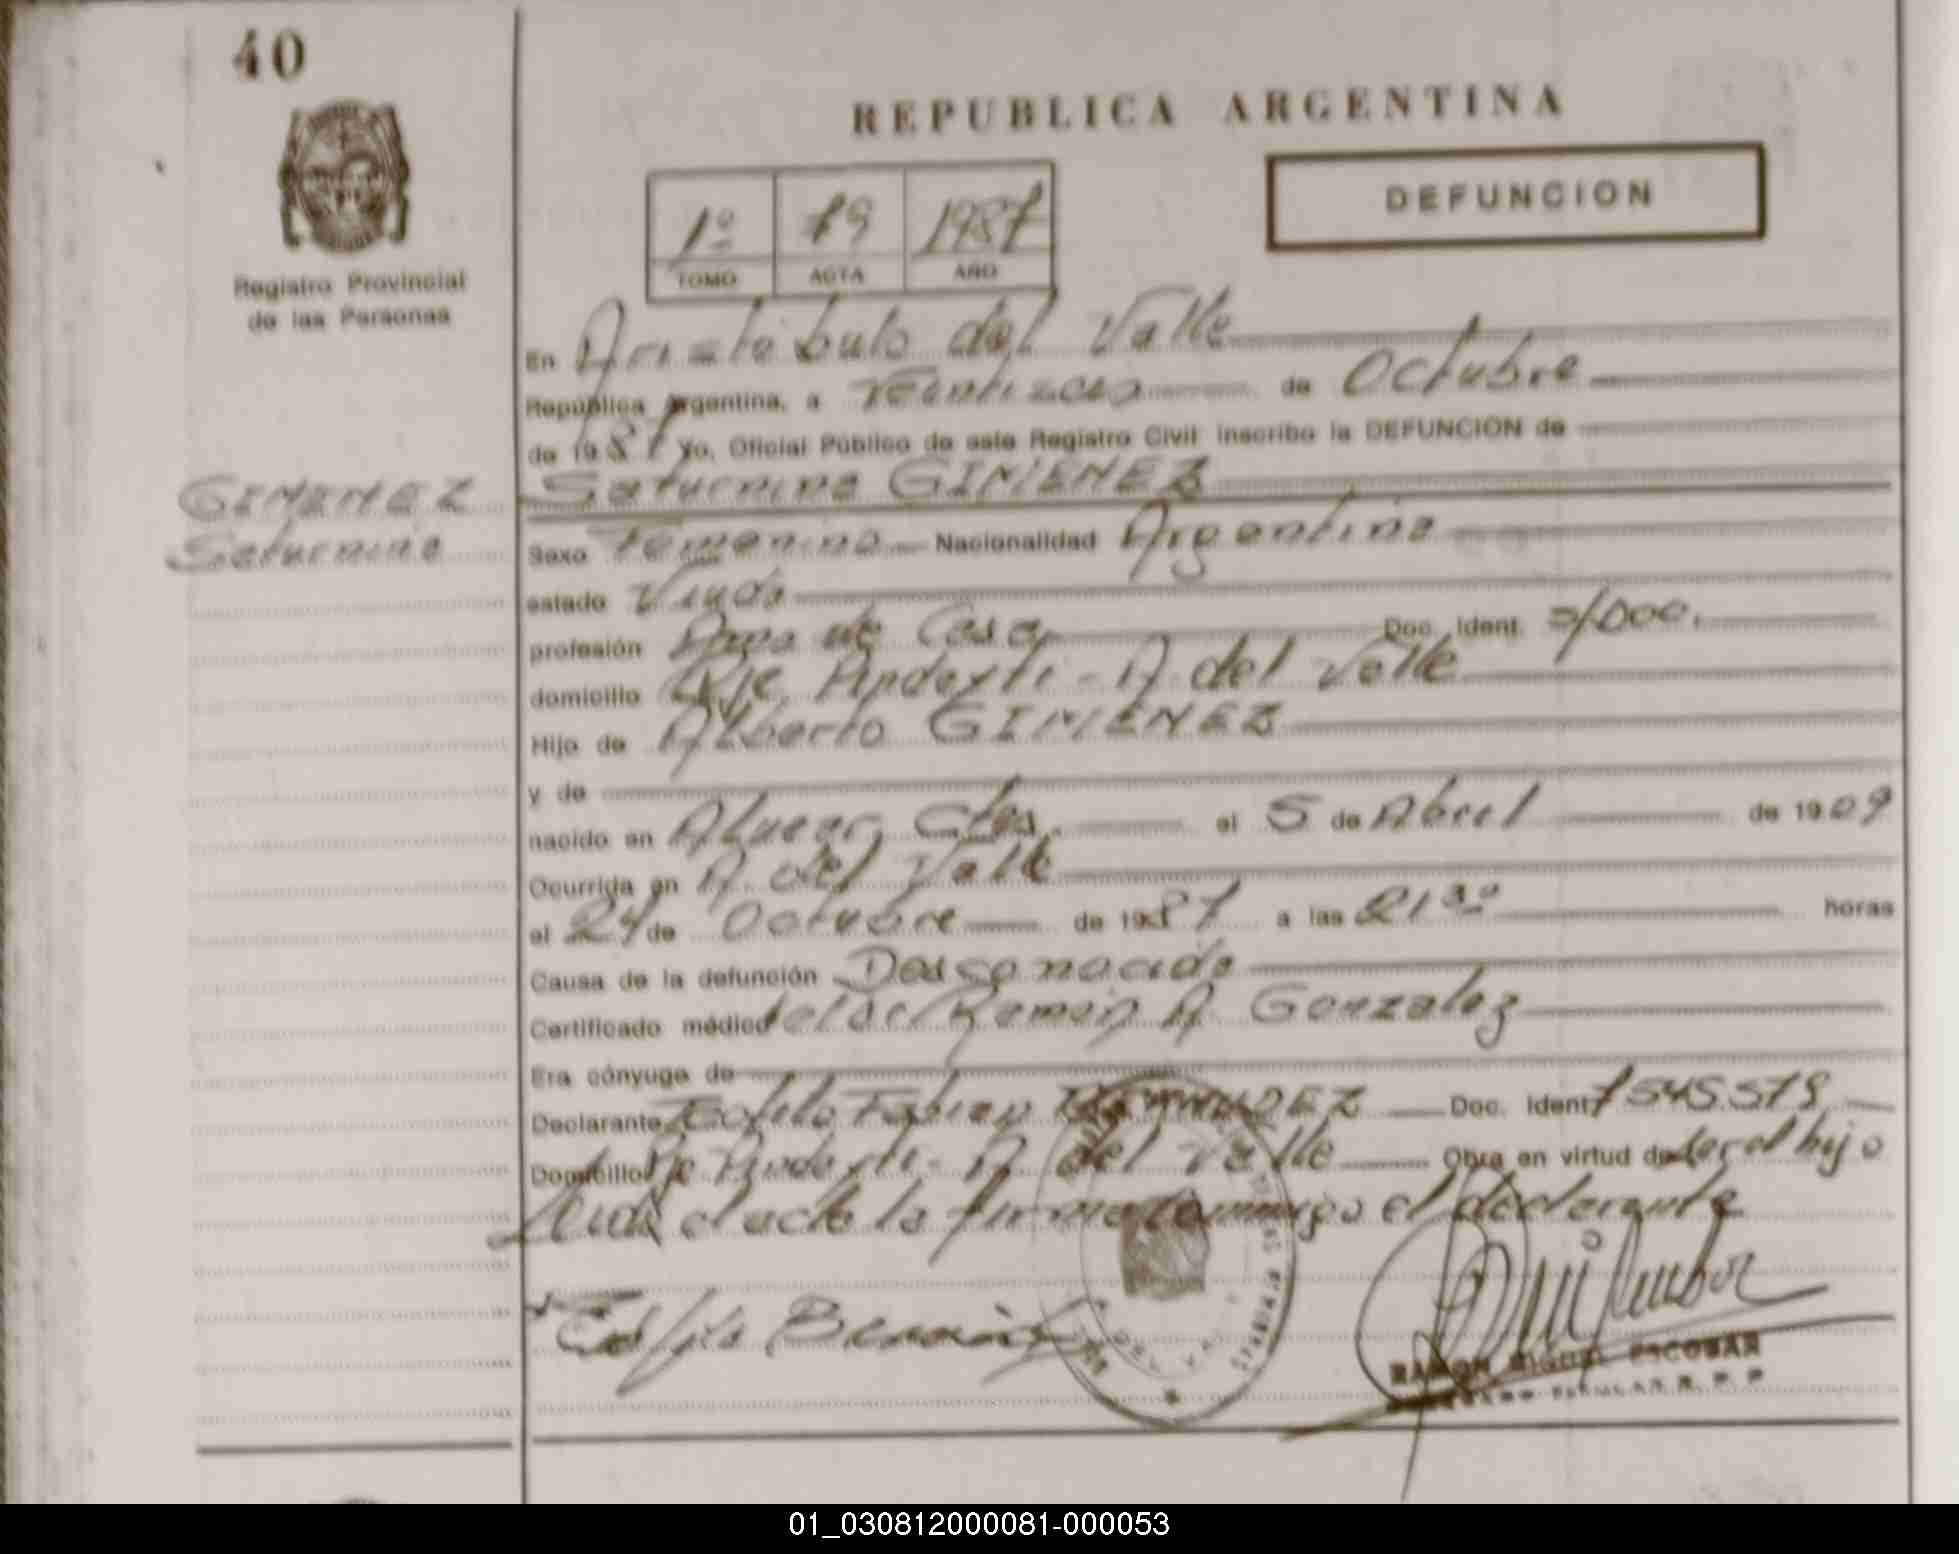 40
REPUBLICA ARGENTINA
DEFUNCION
1º 79 1987
TOMO ACTA AÑO
Registro Provincial
de las Personas
En Aristobulo del Valle
República Argentina, a Veintiseis de Octubre
de 1987 Yo, Oficial Público de este Registro Civil inscribo la DEFUNCION de
GIMENEZ
Saturnina
Saturnina GIMENEZ
Sexo Femenino Nacionalidad Argentina
estado Viuda
profesión Ama de Casa Doc. Ident. s/Doc.
domicilio Pje Pindayti - A del Valle
Hijo de Alberto GIMENEZ
y de
nacido en Alvear, Ctes. el 5 de Abril de 1909
Ocurrida en A. del Valle
el 24 de Octubre de 1987 a las 21 30 horas
Causa de la defunción Desconocida
Certificado médico del Dr Ramón A Gonzalez
Era cónyuge de
Declarante Teofilo Fabian Doc. Ident 7545578
Domicilio Pje Pindayti - A del Valle Obra en virtud de ser el hijo
Leida el acta la firma conmigo el declarante
Teofilo
RAMON MIGUEL ESCOBAR
R. P. P
01_030812000081-000053